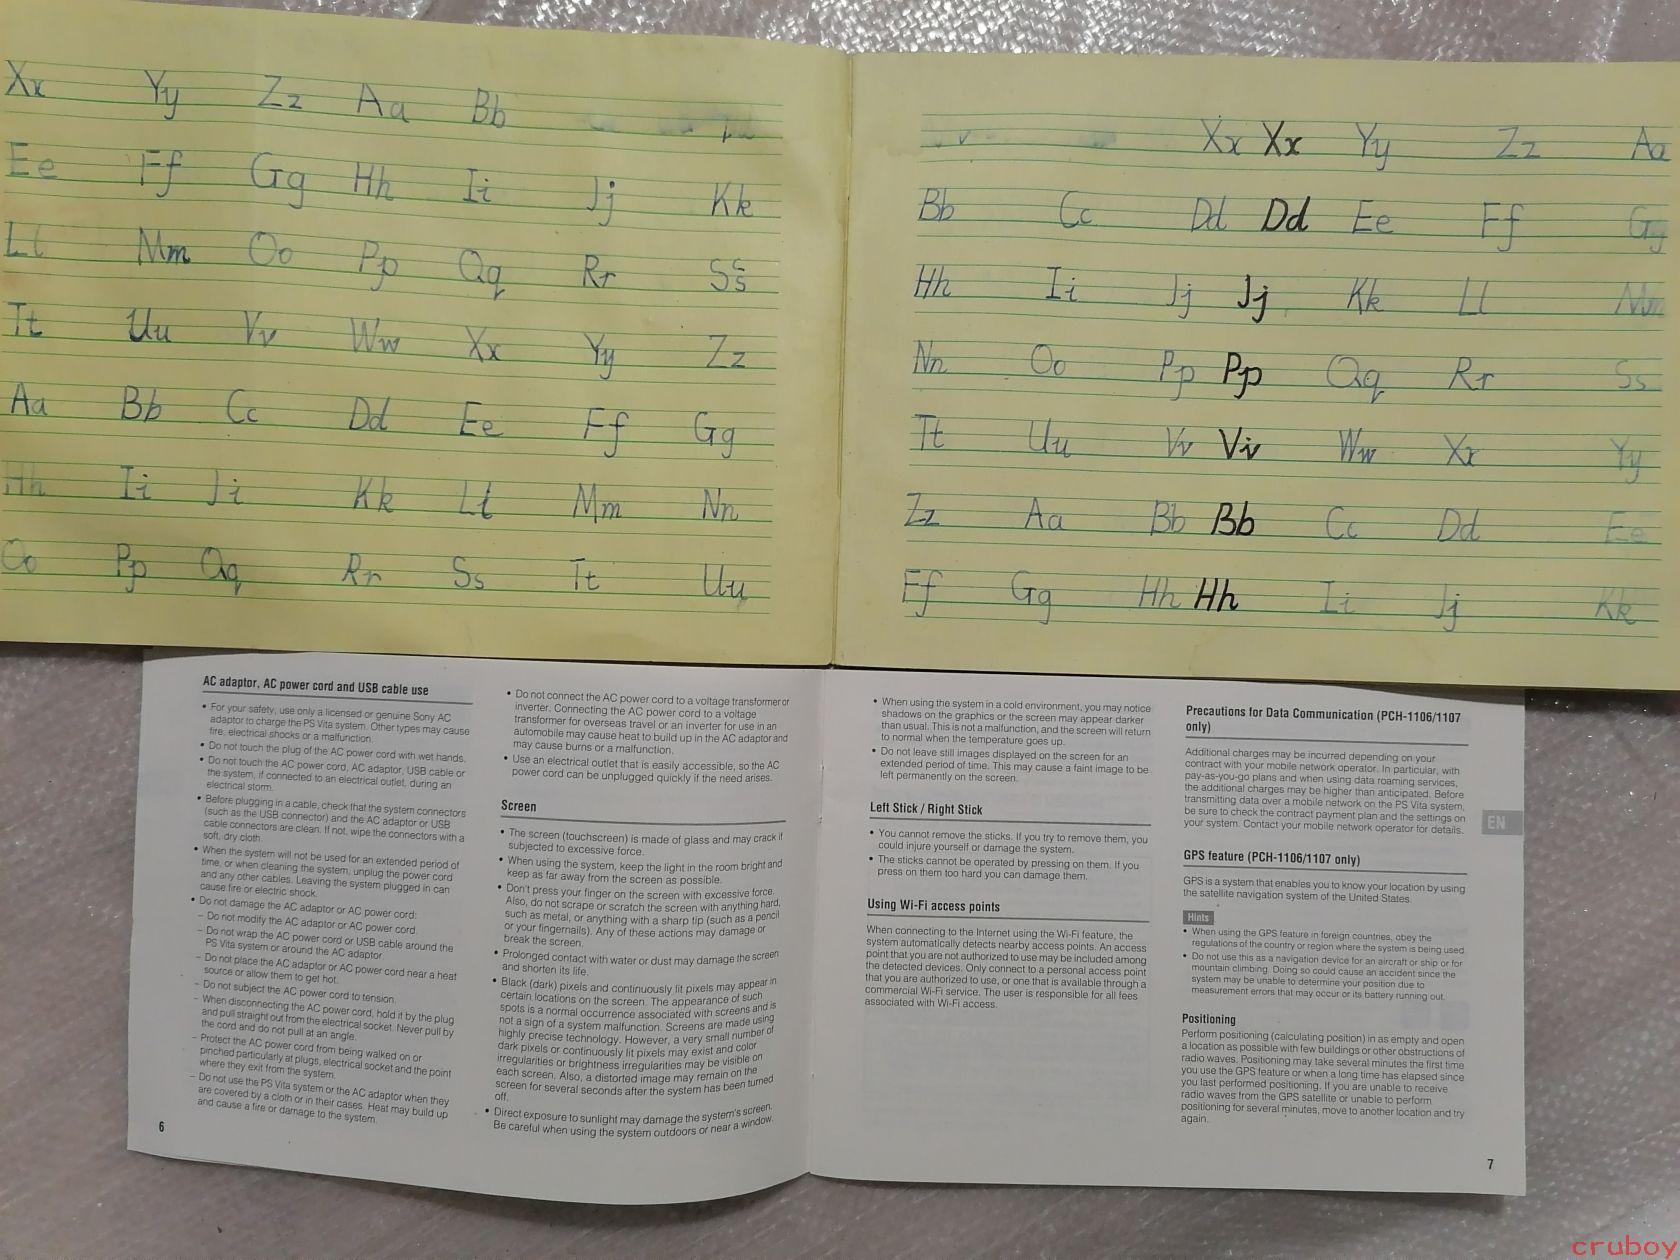 Xx Yy Zz Aa Bb
Ee Ff Gg Hh Ii Jj Kk
Ll Mm Oo Pp Qq Rr Ss s
Tt Uu Vv Ww Xx Yy Zz
Aa Bb Cc Dd Ee Ff Gg
Hh Ii Ji Kk Ll Mm Nn
Oo Pp Qq Rr Ss Tt Uu
Xx Xx Yy Zz Aa
Bb Cc Dd Dd Ee Ff Gg
Hh Ii Jj Jj Kk Ll Mm
Nn Oo Pp Pp Qq Rr Ss
Tt Uu Vv Vv Ww Xx Yy
Zz Aa Bb Bb Cc Dd Ee
Ff Gg Hh Hh Ii Jj Kk
AC adaptor, AC power cord and USB cable use
• For your safety, use only a licensed or genuine Sony AC
adaptor to charge the PS Vita system. Other types may cause
fire, electrical shocks or a malfunction.
• Do not touch the plug of the AC power cord with wet hands.
• Do not touch the AC power cord, AC adaptor, USB cable or
the system, if connected to an electrical outlet, during an
electrical storm.
• Before plugging in a cable, check that the system connectors
(such as the USB connector) and the AC adaptor or USB
cable connectors are clean. If not, wipe the connectors with a
soft, dry cloth.
• When the system will not be used for an extended period of
time, or when cleaning the system, unplug the power cord
and any other cables. Leaving the system plugged in can
cause fire or electric shock.
• Do not damage the AC adaptor or AC power cord:
– Do not modify the AC adaptor or AC power cord.
– Do not wrap the AC power cord or USB cable around the
PS Vita system or around the AC adaptor
– Do not place the AC adaptor or AC power cord near a heat
source or allow them to get hot.
– Do not subject the AC power cord to tension.
– When disconnecting the AC power cord, hold it by the plug
and pull straight out from the electrical socket. Never pull by
the cord and do not pull at an angle.
– Protect the AC power cord from being walked on or
pinched particularly at plugs, electrical socket and the point
where they exit from the system.
– Do not use the PS Vita system or the AC adaptor when they
are covered by a cloth or in their cases. Heat may build up
and cause a fire or damage to the system.
6
• Do not connect the AC power cord to a voltage transformer or
inverter. Connecting the AC power cord to a voltage
transformer for overseas travel or an inverter for use in an
automobile may cause heat to build up in the AC adaptor and
may cause burns or a malfunction.
• Use an electrical outlet that is easily accessible, so the AC
power cord can be unplugged quickly if the need arises.
Screen
• The screen (touchscreen) is made of glass and may crack if
subjected to excessive force.
• When using the system, keep the light in the room bright and
keep as far away from the screen as possible.
• Don't press your finger on the screen with excessive force.
Also, do not scrape or scratch the screen with anything hard,
such as metal, or anything with a sharp tip (such as a pencil
or your fingernails). Any of these actions may damage or
break the screen.
• Prolonged contact with water or dust may damage the screen
and shorten its life.
• Black (dark) pixels and continuously lit pixels may appear in
certain locations on the screen. The appearance of such
spots is a normal occurrence associated with screens and is
not a sign of a system malfunction. Screens are made using
highly precise technology. However, a very small number of
dark pixels or continuously lit pixels may exist and color
irregularities or brightness irregularities may be visible on
each screen. Also, a distorted image may remain on the
screen for several seconds after the system has been turned
off.
• Direct exposure to sunlight may damage the system's screen.
Be careful when using the system outdoors or near a window.
• When using the system in a cold environment, you may notice
shadows on the graphics or the screen may appear darker
than usual. This is not a malfunction, and the screen will return
to normal when the temperature goes up.
• Do not leave still images displayed on the screen for an
extended period of time. This may cause a faint image to be
left permanently on the screen.
Left Stick / Right Stick
• You cannot remove the sticks. If you try to remove them, you
could injure yourself or damage the system.
• The sticks cannot be operated by pressing on them. If you
press on them too hard you can damage them.
Using Wi-Fi access points
When connecting to the Internet using the Wi-Fi feature, the
system automatically detects nearby access points. An access
point that you are not authorized to use may be included among
the detected devices. Only connect to a personal access point
that you are authorized to use, or one that is available through a
commercial Wi-Fi service. The user is responsible for all fees
associated with Wi-Fi access.
Precautions for Data Communication (PCH-1106/1107
only)
Additional charges may be incurred depending on your
contract with your mobile network operator. In particular, with
pay-as-you-go plans and when using data roaming services,
the additional charges may be higher than anticipated. Before
transmitting data over a mobile network on the PS Vita system,
be sure to check the contract payment plan and the settings on
your system. Contact your mobile network operator for details.
EN
GPS feature (PCH-1106/1107 only)
GPS is a system that enables you to know your location by using
the satellite navigation system of the United States.
Hints
• When using the GPS feature in foreign countries, obey the
regulations of the country or region where the system is being used.
• Do not use this as a navigation device for an aircraft or ship or for
mountain climbing. Doing so could cause an accident since the
system may be unable to determine your position due to
measurement errors that may occur or its battery running out.
Positioning
Perform positioning (calculating position) in as empty and open
a location as possible with few buildings or other obstructions of
radio waves. Positioning may take several minutes the first time
you use the GPS feature or when a long time has elapsed since
you last performed positioning. If you are unable to receive
radio waves from the GPS satellite or unable to perform
positioning for several minutes, move to another location and try
again.
7
cruboy